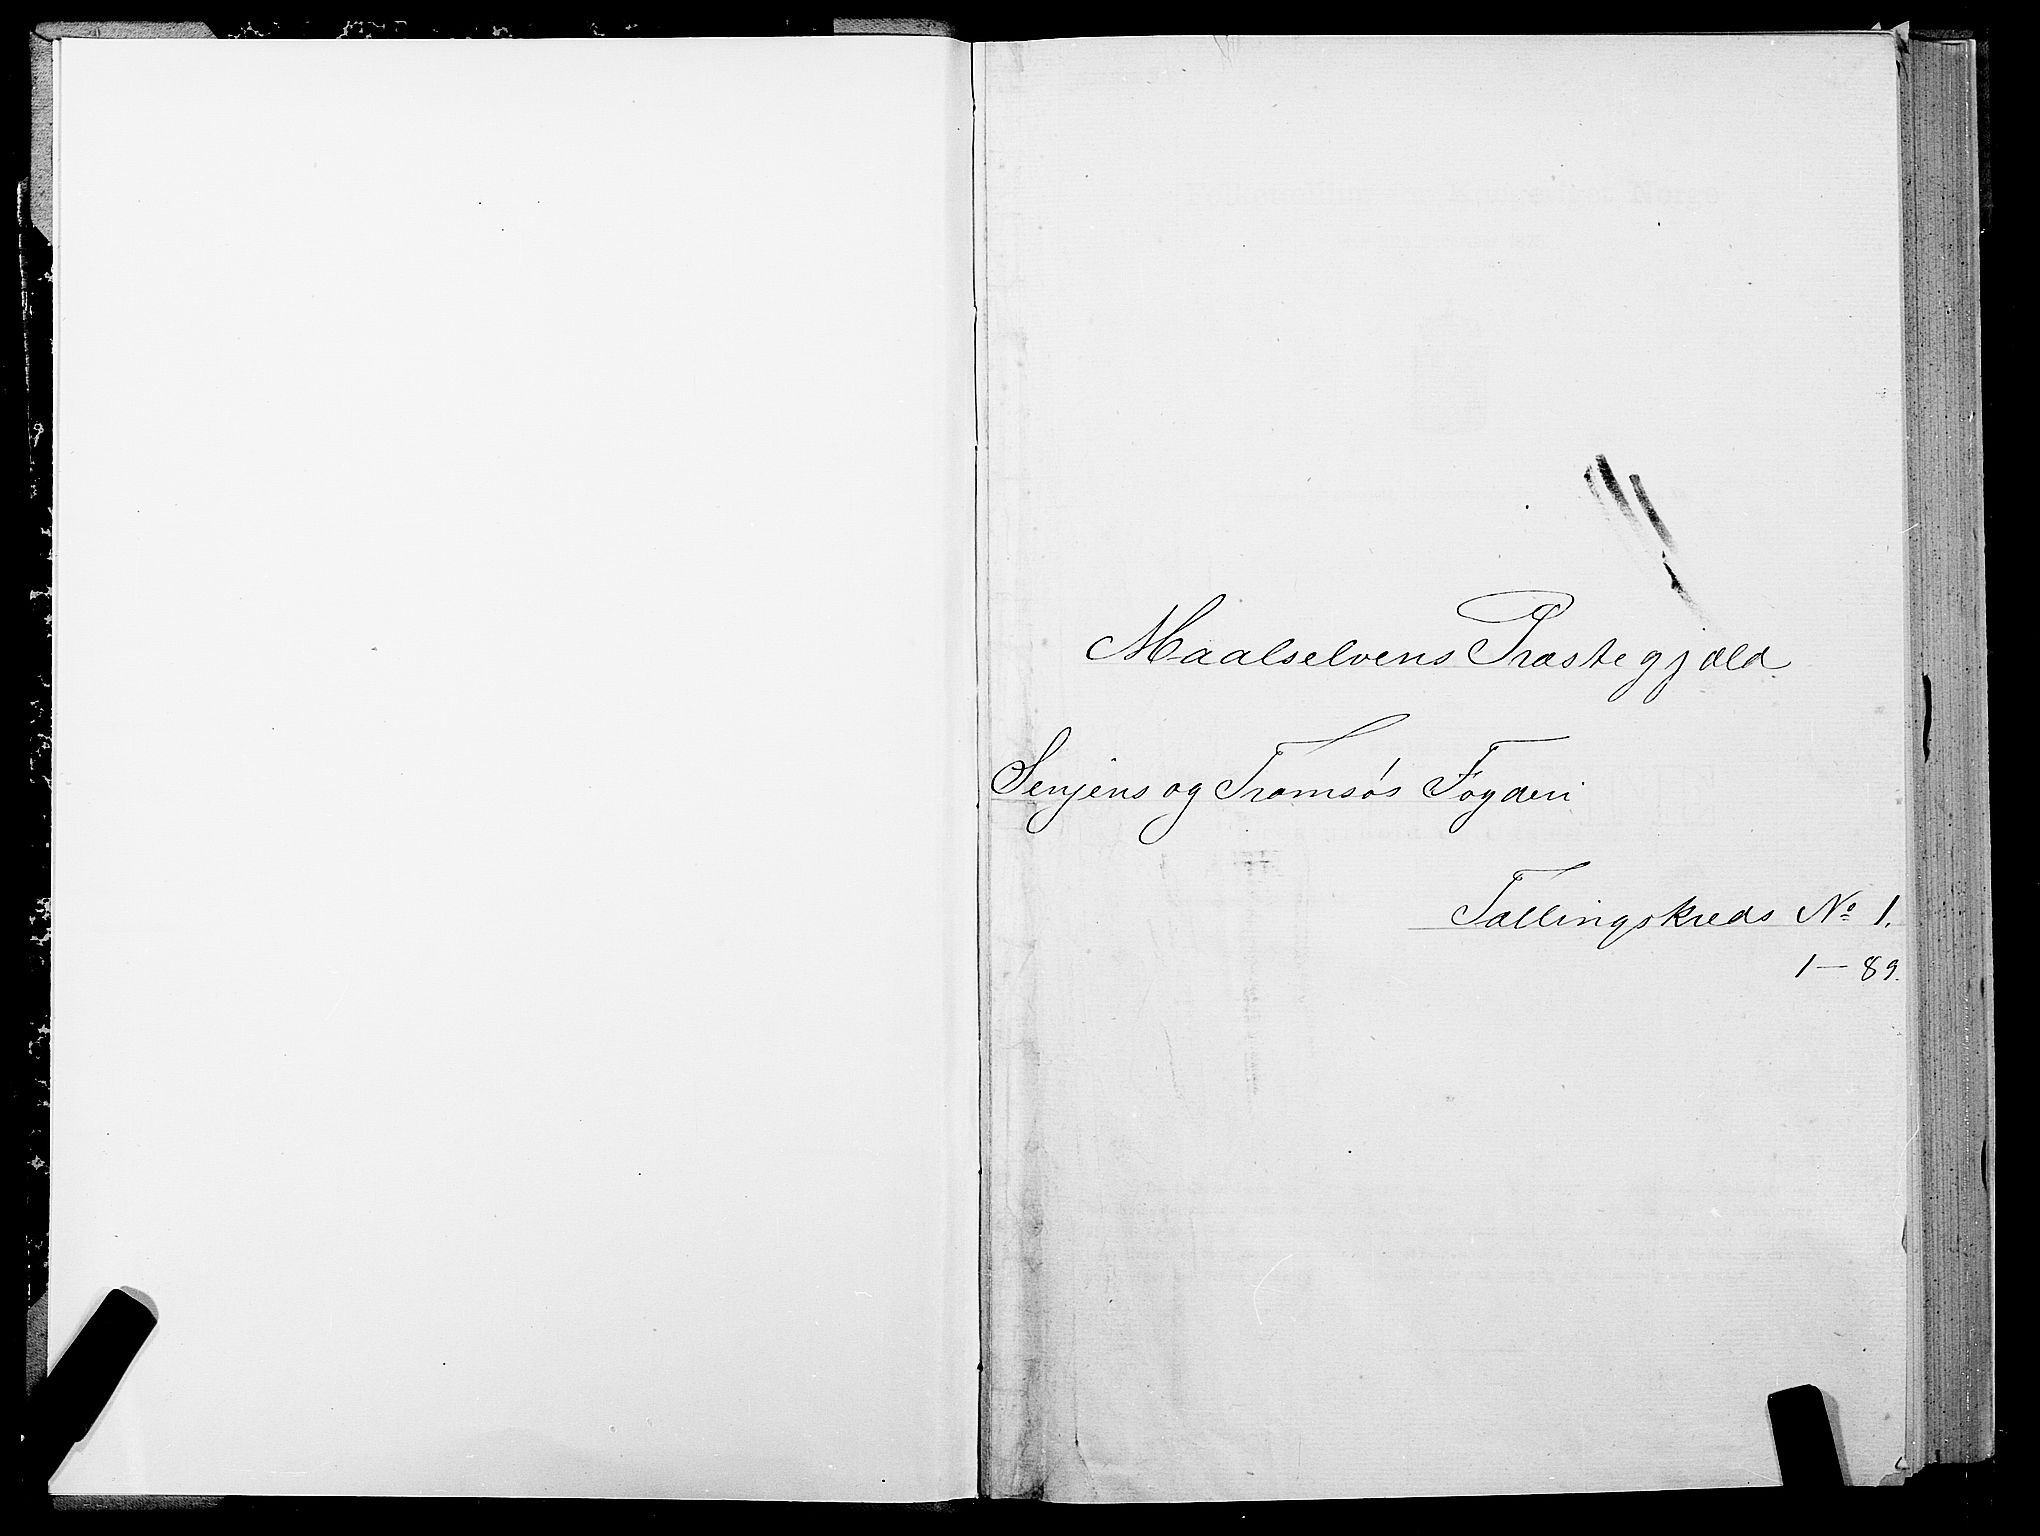 Maalselvens Præstegjæld
Senjens og Tromsøs Fogderi
Tællingskreds No 1.
1 — 89.